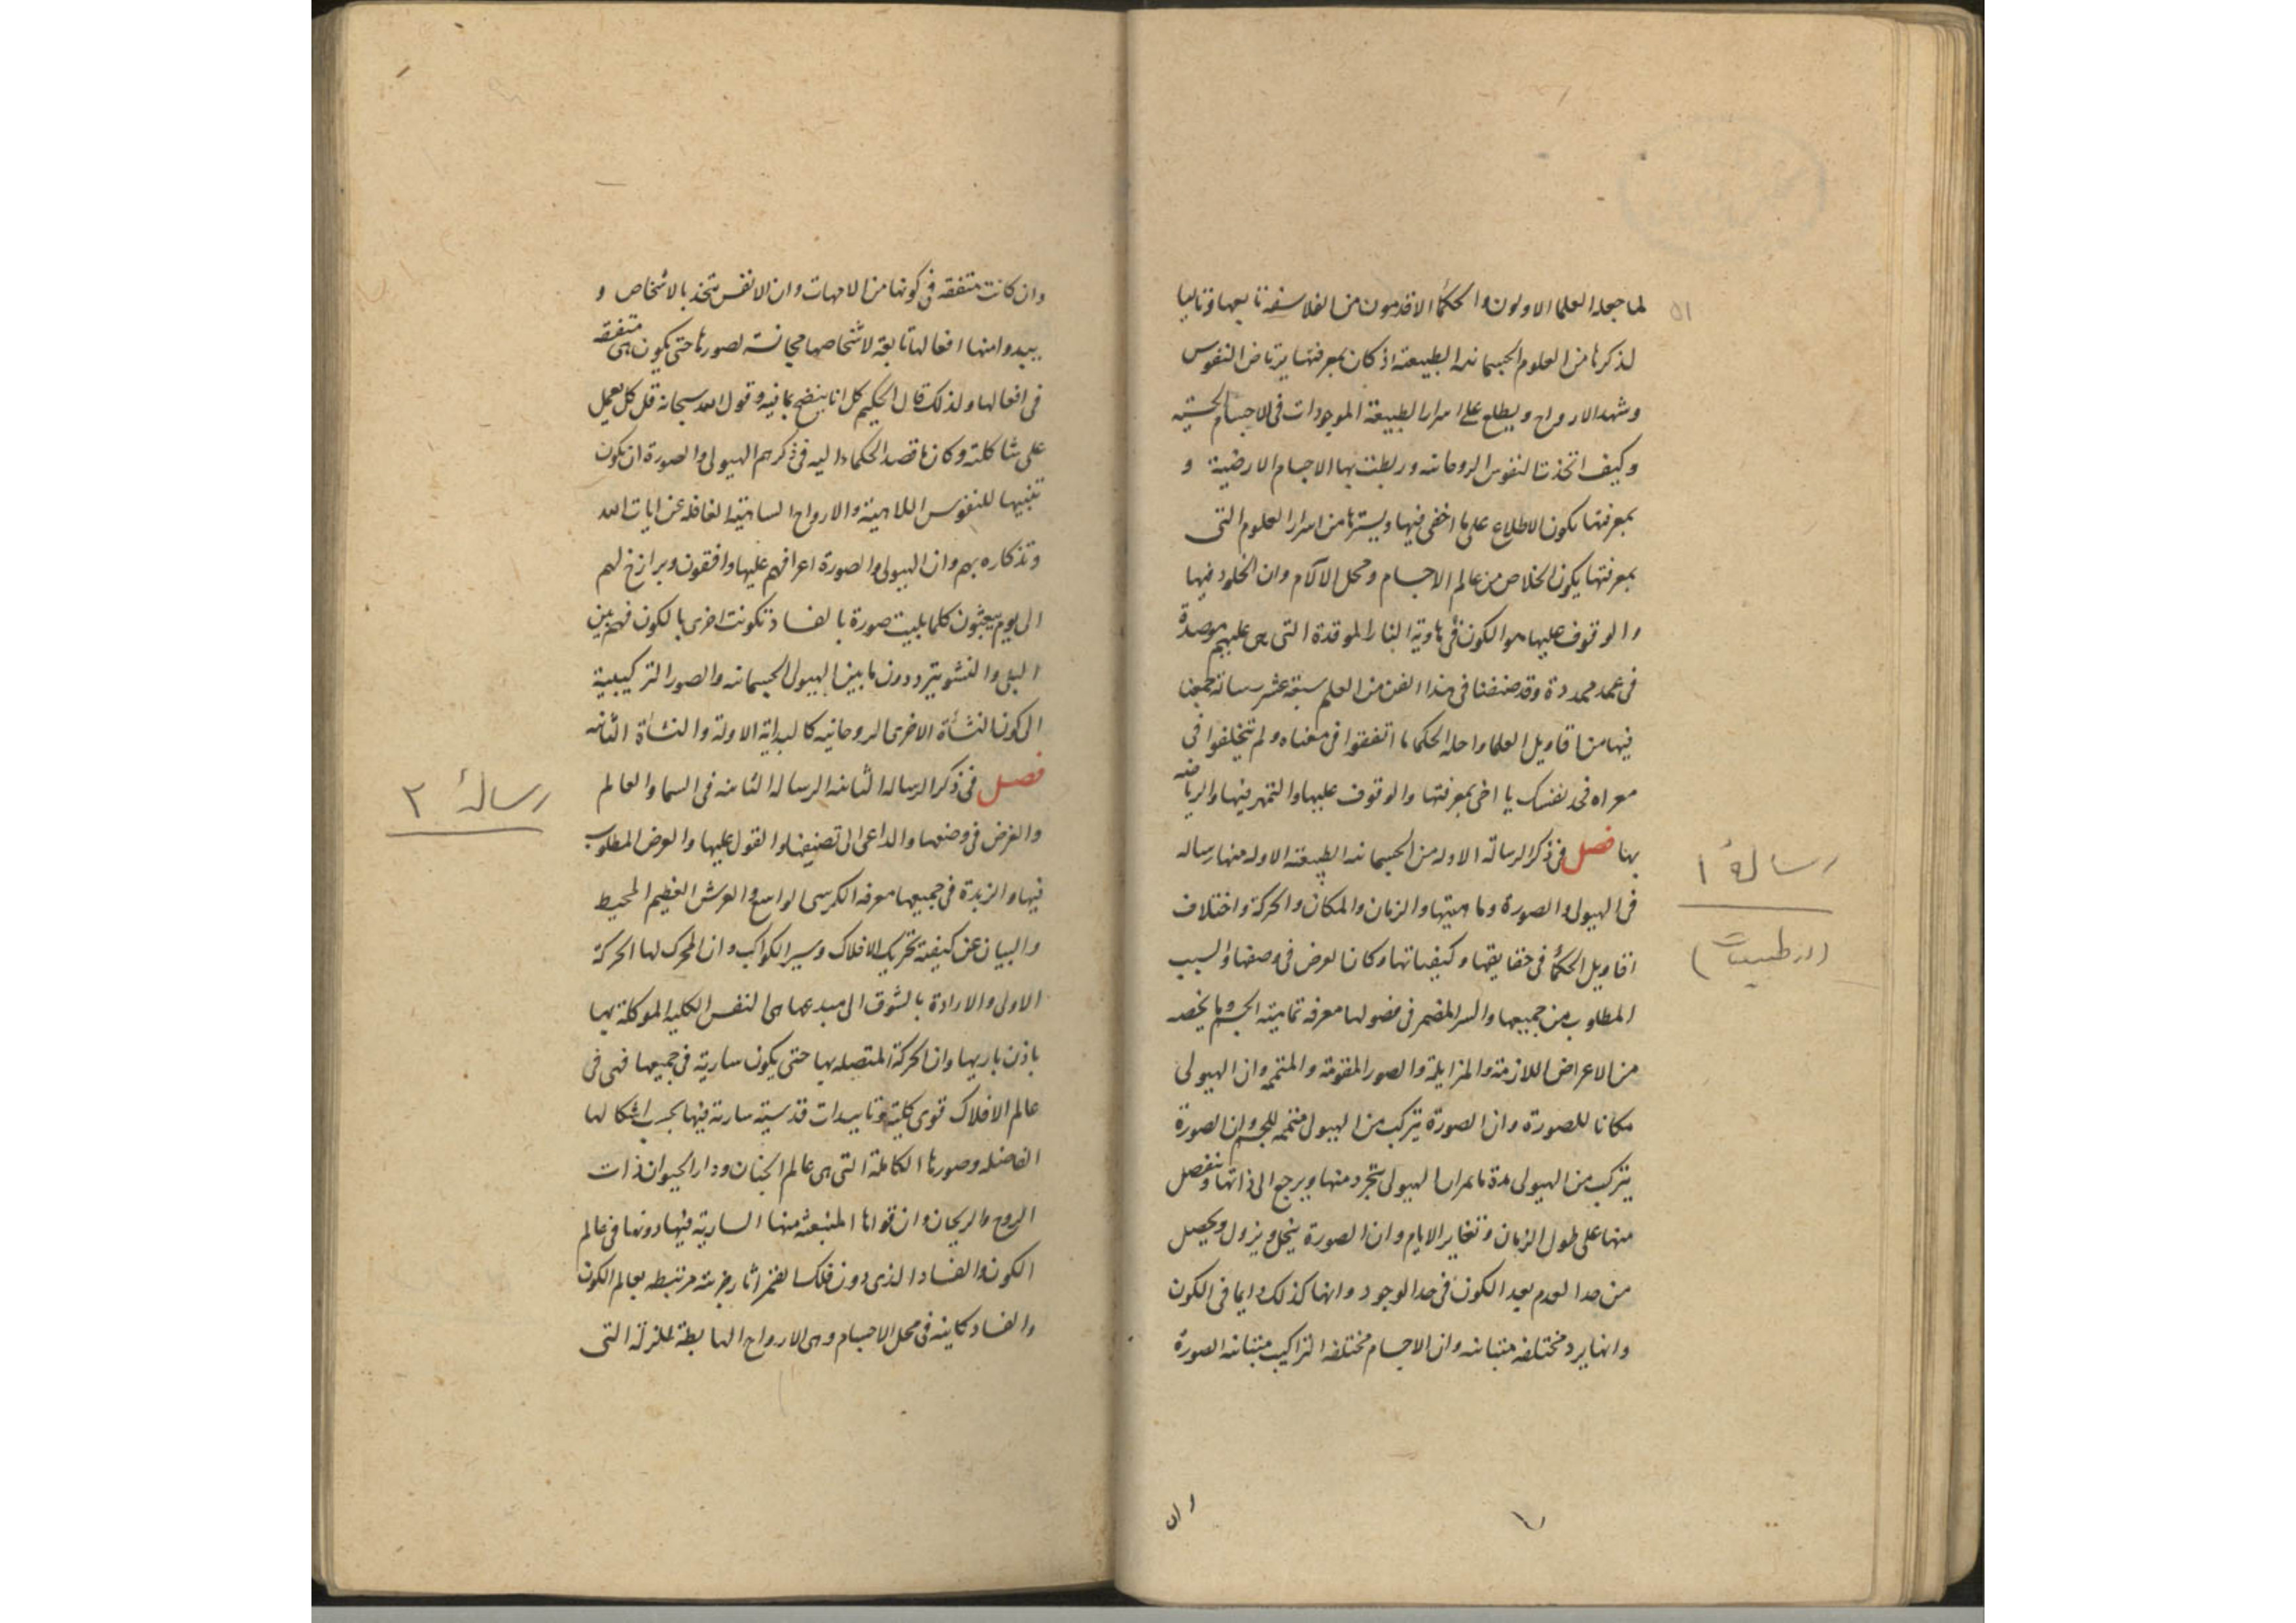 لما جعله العلما الاولون والحكمأ الاقدمون من الفلاسفة تا بعها وتاليا
لذكرنا من العلوم الجسمانيه الطبيعته اذ كان بمعرفتها يرتاض النفوس
وشهد الارواح ويطلع على اسرار الطبيعة الموجودات فى الاجسام الحسّيه
وكيف اتخذت النفوس الروحانيه وربطت بها الاجسام الارضية و
بمعرفتها يكون الاطلاع على ما اخفى فيها ويسترها من اسرار العلوم التى
بمعرفتها يكون الخلاص من عالم الاجسام ومحل الآلام وان الخلود فيها
والوقوف عليها هو الكون فى هاوية النار الموقدة التى هى عليهم موصدة
فى عمد ممددة وقد صنفنا فى هذا الفن من العلم سبعة عشر رسالة جمعنا
فيها من اقاويل العلما واجله الحكما ما اتفقوا فى معناه ولم يتخلفوا فى
معراه فخذ نفسك يا اخى بمعرفتها والوقوف عليها والتمهر فيها والرياضه
بها فصل فى ذكر الرسالة الاوله من الجسمانيه الطبيعته الاوله منها رساله
فى الهيولى والصورة وماهيتها والزمان والمكان والحركة واختلاف
اقاويل الحكمأ فى حقايقها وكيفياتها وكان الغرض فى وصفها والسبب
المطلوب من جميعها والسر المضمر فى فصولها معرفه تماميته الجسم وما يخصه
من الاعراض اللازمة والمزايلة والصور المقومة والمتممه وان الهيولى
مكانا للصورة وان الصورة يتركب من الهيولى متممه للجسم وان الصورة
يتركب من الهيولى مدة ما مر ان الهيولى يتجرد منها ويرجع الى ذاتها وتنفصل
منها على طول الزمان وتغاير الايام وان الصورة ينحل ويزول ويحصل
من حد العدم بعد الكون فى حد الوجود وانها كذلك دايما فى الكون
وانها يرد مختلفه متباينه وان الاجسام مختلفه التراكيب متباينه الصورة
٥١
رسالهٔ ١
(از طبیعیات)
وان كانت متفقه فى كونها من الامهات وان الانفس تتخذ بالاشخاص و
يبدوا منها افعالها تابعة لاشخاصها مجانسة لصورها حتى يكون هى متفقه
فى افعالها ولذلك قال الحكيم كل انا ينضح بما فيه وقول الله سبحانه قل كل يعمل
على شاكلته وكان ما قصد الحكماء اليه فى ذكرهم الهيولى والصورة ان يكون
تنبيها للنفوس اللاهية والارواح الساهية الغافله عن ايات الله
وتذكاره بهم وان الهيولى والصورة اعرافهم عليها واقفون وبرازخ لهم
الى يوم يبعثون كلما بليت صورة بالفساد تكونت اخرى بالكون فهم بين
البلى والنشو يترددون ما بين الهيولى الجسمانيه والصور التركيبية
الى كون النشأة الاخرى الروحانيه كالبداية الاولة والنشأة الثانيه
فصل فى ذكر الرساله الثانيه الرساله الثانيه فى السما والعالم
والغرض فى وضعها والداعى الى تصنيفها والقول عليها والغرض المطلوب
فيها والزبدة فى جميعها معرفه الكرسى الواسع والعرش العظيم المحيط
والبيان عن كيفية تحريك الافلاك وسير الكواكب وان المحرك لها الحركة
الاولى والارادة بالشوق الى مبدعها هى النفس الكليه الموكلة بها
باذن باريها وان الحركة المتصله بها حتى يكون سارية فى جميعها فهى فى
عالم الافلاك قوى كلية وتاييدات قدسية سارية فيها بحسب اشكالها
الفاضله وصورها الكاملة التى هى عالم الجنان ودار الحيوان ذات
الروح والريحان وان قواها المنبعثه منها السارية فيها دونها فى عالم
الكون والفساد الذى دون فلك القمر اثار جزيئه مرتبطه بعالم الكون
والفساد كاينه فى محل الاجسام وهى الارواح الهابطة للزلة التى
رسالهٔ ٢